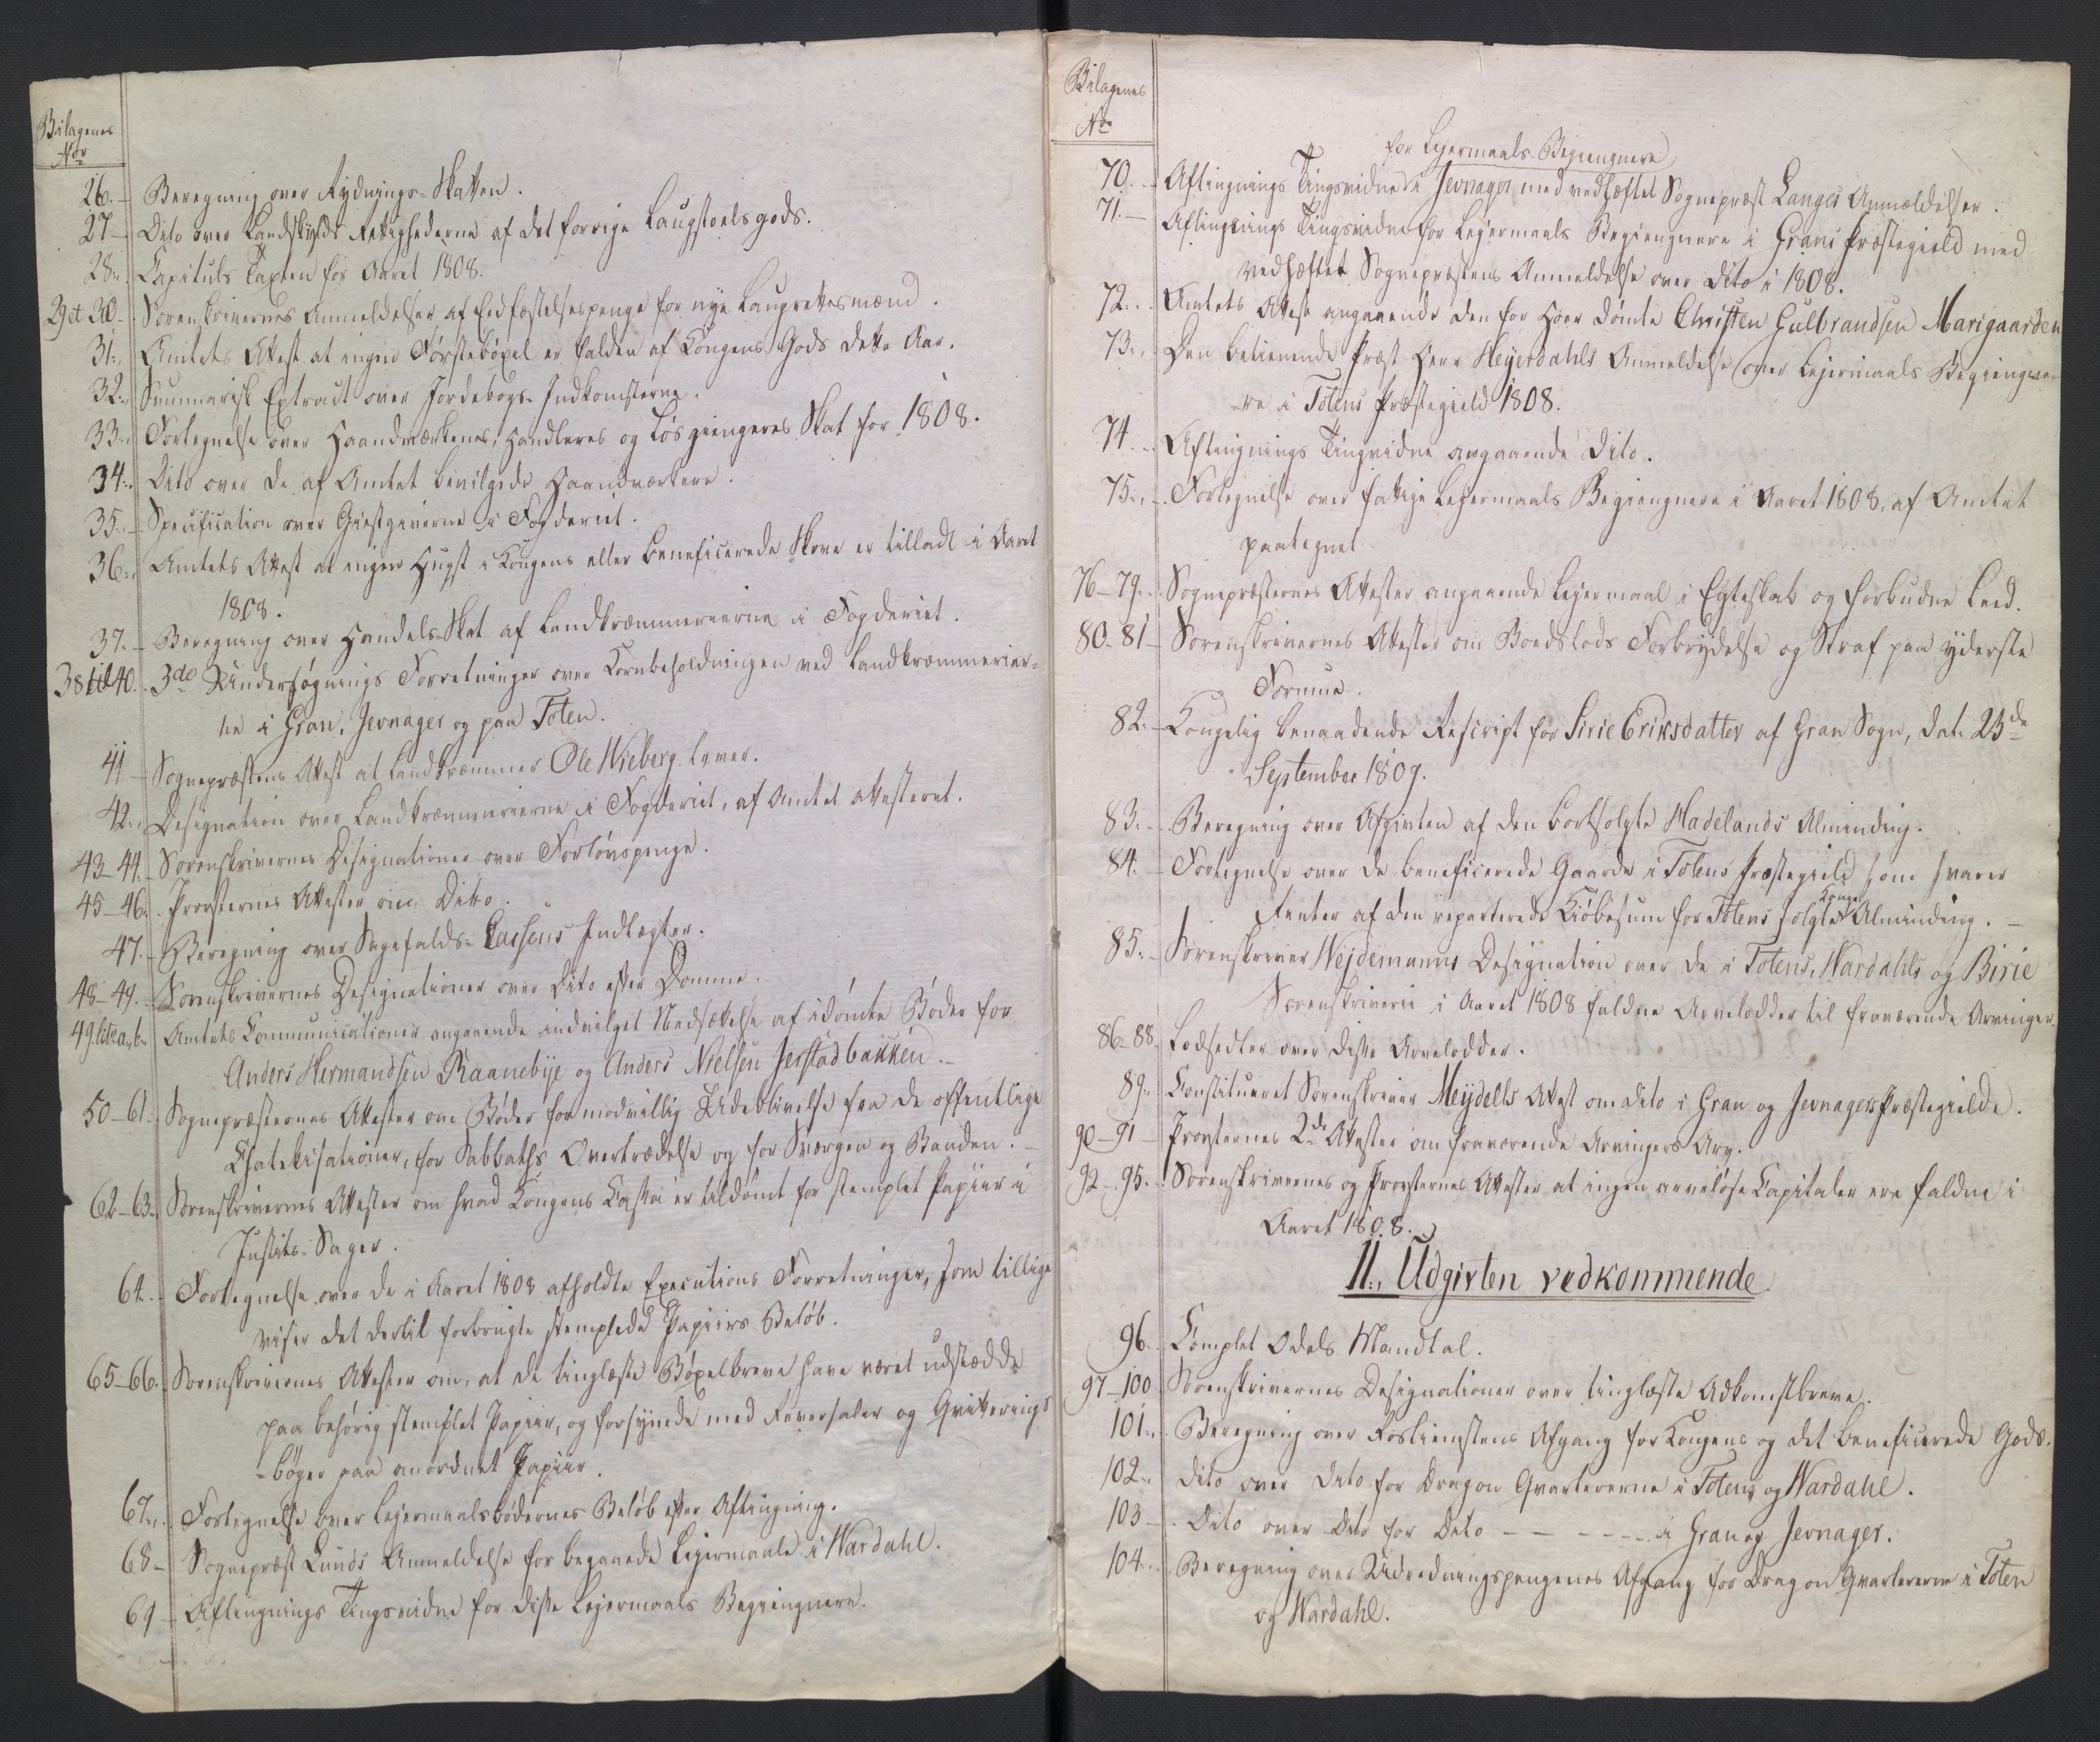 Bilagenes
Nor
26. Beregning over Rydnings-Skatten.
27 Dito over Landskylds Rettighederne af det forrige Laugstoelsgods.
28. Capituls Taxten for Aaret 1808.
29 et 30. Sorenskrivernes Anmeldelser af Eedfæstelsespenge for nye Laugrettesmænd.
31. Amtets Attest at ingen Førstebøxel er falden af Kongens Gods dette Aar.
32. Summarisk Extract over Jordebogs-Indkomsterne.
33. Fortegnelse over Haandværkernes, Handleres og Løsgiengeres Skat for 1808.
34. Dito over de af Amtet bevilgede Haandværkere.
35. Specification over Giestgiverne i Fogderiet.
36. Amtets Attest at ingen Hugst i Kongens eller beneficerede Skove er tilladt i Aaret
1808.
37. Beregning over Handels-Skat af Landkræmmerierne i Fogderiet.
38 til 40. 3de Undersøgnings Forretninger over Kornbeholdningen ved Landkræmmerier-
ne i Gran, Jevnager og paa Toten.
41 Sognepræstens Attest at Landkræmmer Ole Wieberg lever.
42. Designation over Landkræmmerierne i Fogderiet, af Amtet attesteret.
43-44. Sorenskrivernes Designationer over Forlovspenge.
45-46. Provsternes Attester om Ditto.
47. Beregning over Sagefalds-Cassens Indtægter.
48-49. Sorenskrivernes Designationer over Dito efter Domme.
49 litr a, b. Amtets Communicationer angaaende indvilget Nedsættelse af idømte Bøder for
Anders Hermandsen Raanebye og Anders Nielsen Jerstadbakken.
50-61. Sognepræsternes Attester om Bøder for modvillig Udeblivelse fra de offentlige
Chatekisationer, for Sabbaths Overtrædelse og for Sværgen og Banden.
62-63. Sorenskrivernes Attester om hvad Kongens Cassa er tildømt for stemplet Papiir i
Justits-Sager.
64. Fortegnelse over de i Aaret 1808 afholdte Executions Forretninger, som tillige
viser det dertil forbrugte stemplede Papiirs Beløb.
65-66. Sorenskrivernes Attester om, at de tinglæste Bøxelbreve have været udstædde
paa behørig stemplet Papiir, og forsynede med Reversaler og Qvitterings
-bøger paa anordnet Papiir.
67. Fortegnelse over Lejermaalsbødernes Beløb efter Aftingning.
68 Sognepræst Lunds Anmeldelse for begaaede Lejermaale i Wardahl.
69 Aftingnings Tingsvidne for disse Lejermaals Begiengnere.
Bilagenes
Nor
for Lejermaals-Begiengnere
70. Aftingnings Tingsvidne i Jevnager med vedhæftet Sognepræst Langes Anmeldelser.
71. Aftingnings Tingsvidne for Lejermaals Begiengnere i Grans Præstegield med
vedhæftet Sognepræstens Anmeldelse over Dito i 1808.
72. Amtets Attest angaaende den for Hoer dømte Christen Gulbrandsen Marigaarden
73. Den betienende Præst Herr Heyerdahls Anmeldelse over Lejermaals Begiengne-
-re i Totens Præstegield 1808.
74. Aftingnings Tingsvidne angaaende Dito.
75. Fortegnelse over fattige Lejermaals Begiengnere i Aaret 1808, af Amtet
paategnet
76-79. Sognepræsternes Attester angaaende Lejermaal i Egteskab og forbudne Leed.
80-81 Sorenskrivernes Attester om Boedslods Forbrydelse og Straf paa yderste
Formue.
82. Kongelig benaadende Rescript for Sirie Eriksdatter af Gran Sogn, dat. 23de
September 1809.
83. Beregning over Afgivten af den bortsolgte Hadelands Alminding.
84. Fortegnelse over de beneficerede Gaarde i Totens Præstegield som svarer
Renter af den reparterede Kiøbesum for Totens solgte Konge Alminding.
85. Sorenskriver Wejdemanns Designation over de i Totens, Wardahls og Birie
Sorenskriverie i Aaret 1808 faldne Arvelodder til fraværende Arvinger.
86-88. Lodsedler over disse Arvelodder.
89. Constitueret Sorenskriver Meydells Attest om dito i Gran og Jevnagers Præstegielde.
90-91 Provsternes 2de Attester om fraværende Arvingers Arv.
92-95. Sorenskrivernes og Provsternes Attester at ingen arveløse Capitaler ere faldne i
Aaret 1808.
II., Udgivten vedkommende.
96. Complet Odels Mandtal.
97-100 Sorenskrivernes Designationer over tinglæste Adkomstbreve.
101. Beregning over Rostienstens Afgang for Kongens og det beneficerede Gods.
102. Dito over Dito for Dragon Qvartererne i Toten og Wardahl.
103 Dito over Dito for Dito - - - - - - i Gran og Jevnager.
104. Beregning over Udredningspengenes Afgang for Dragon Qvartererne i Toten
og Wardahl.